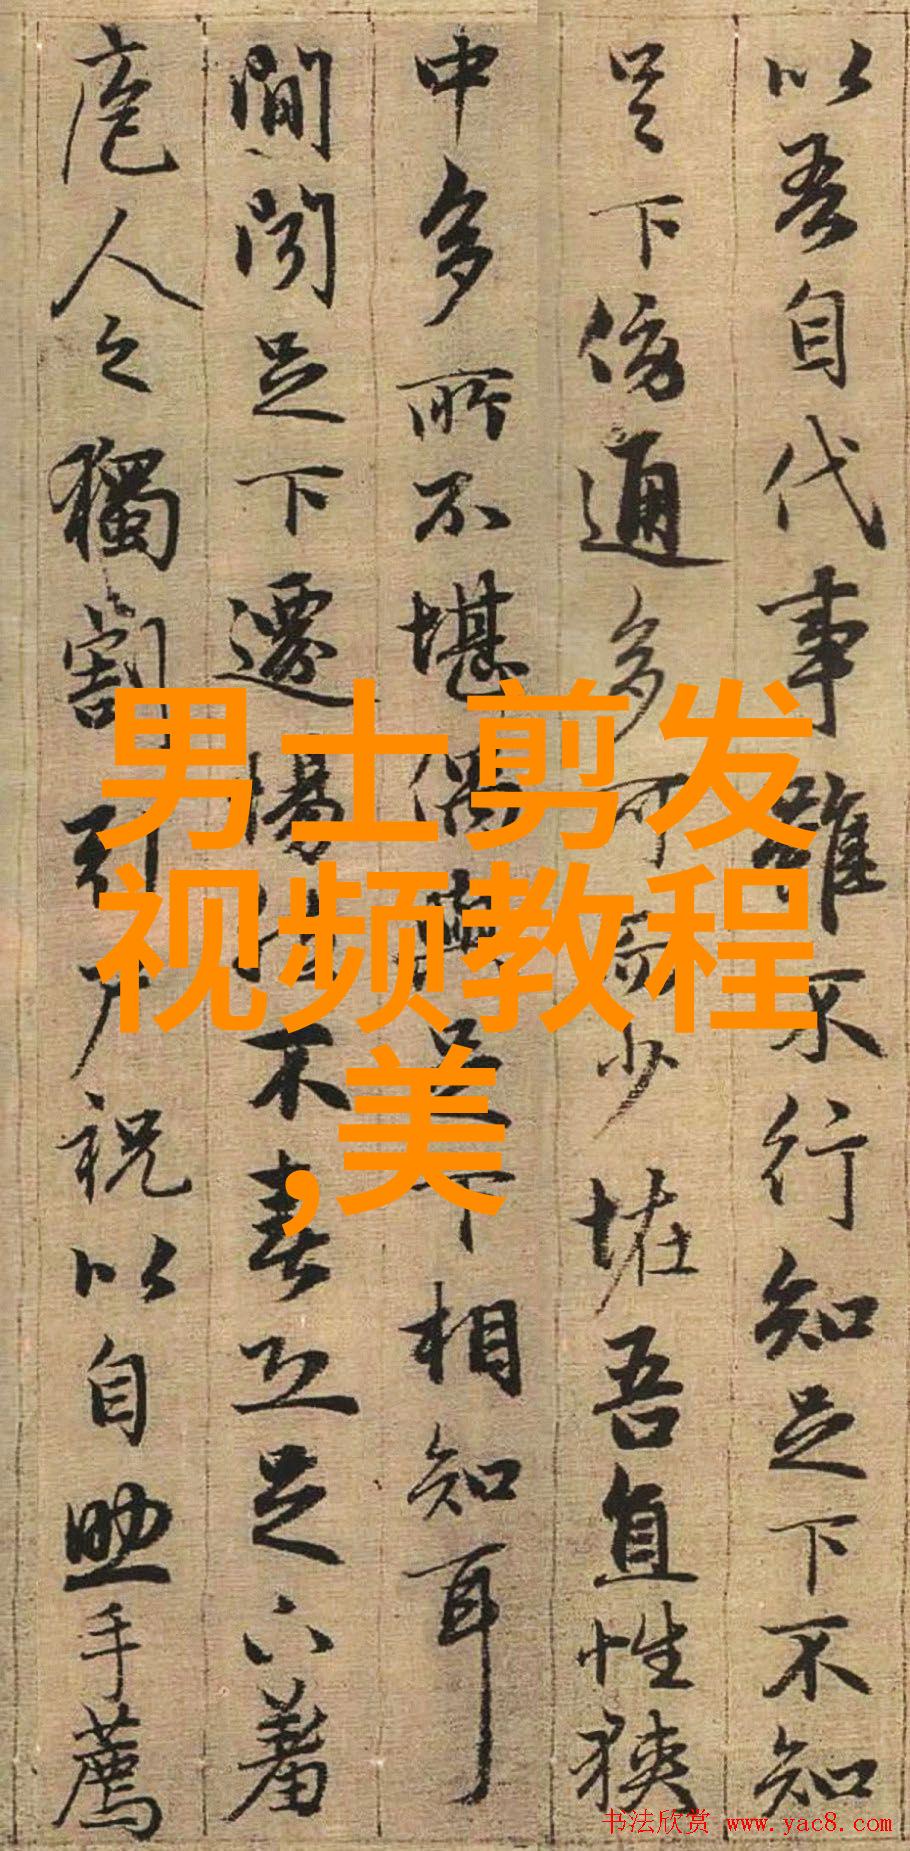 以吾自代事雖不行知足下不知
足下傍通多可而少恠吾直性狹
中多所不堪偶與足下相知耳
間聞足下遷惕然不喜恐足下羞
庖人之獨割引尸祝以自助手薦
男士剪发
视频教程
,美
书法欣赏 www.yac8.com